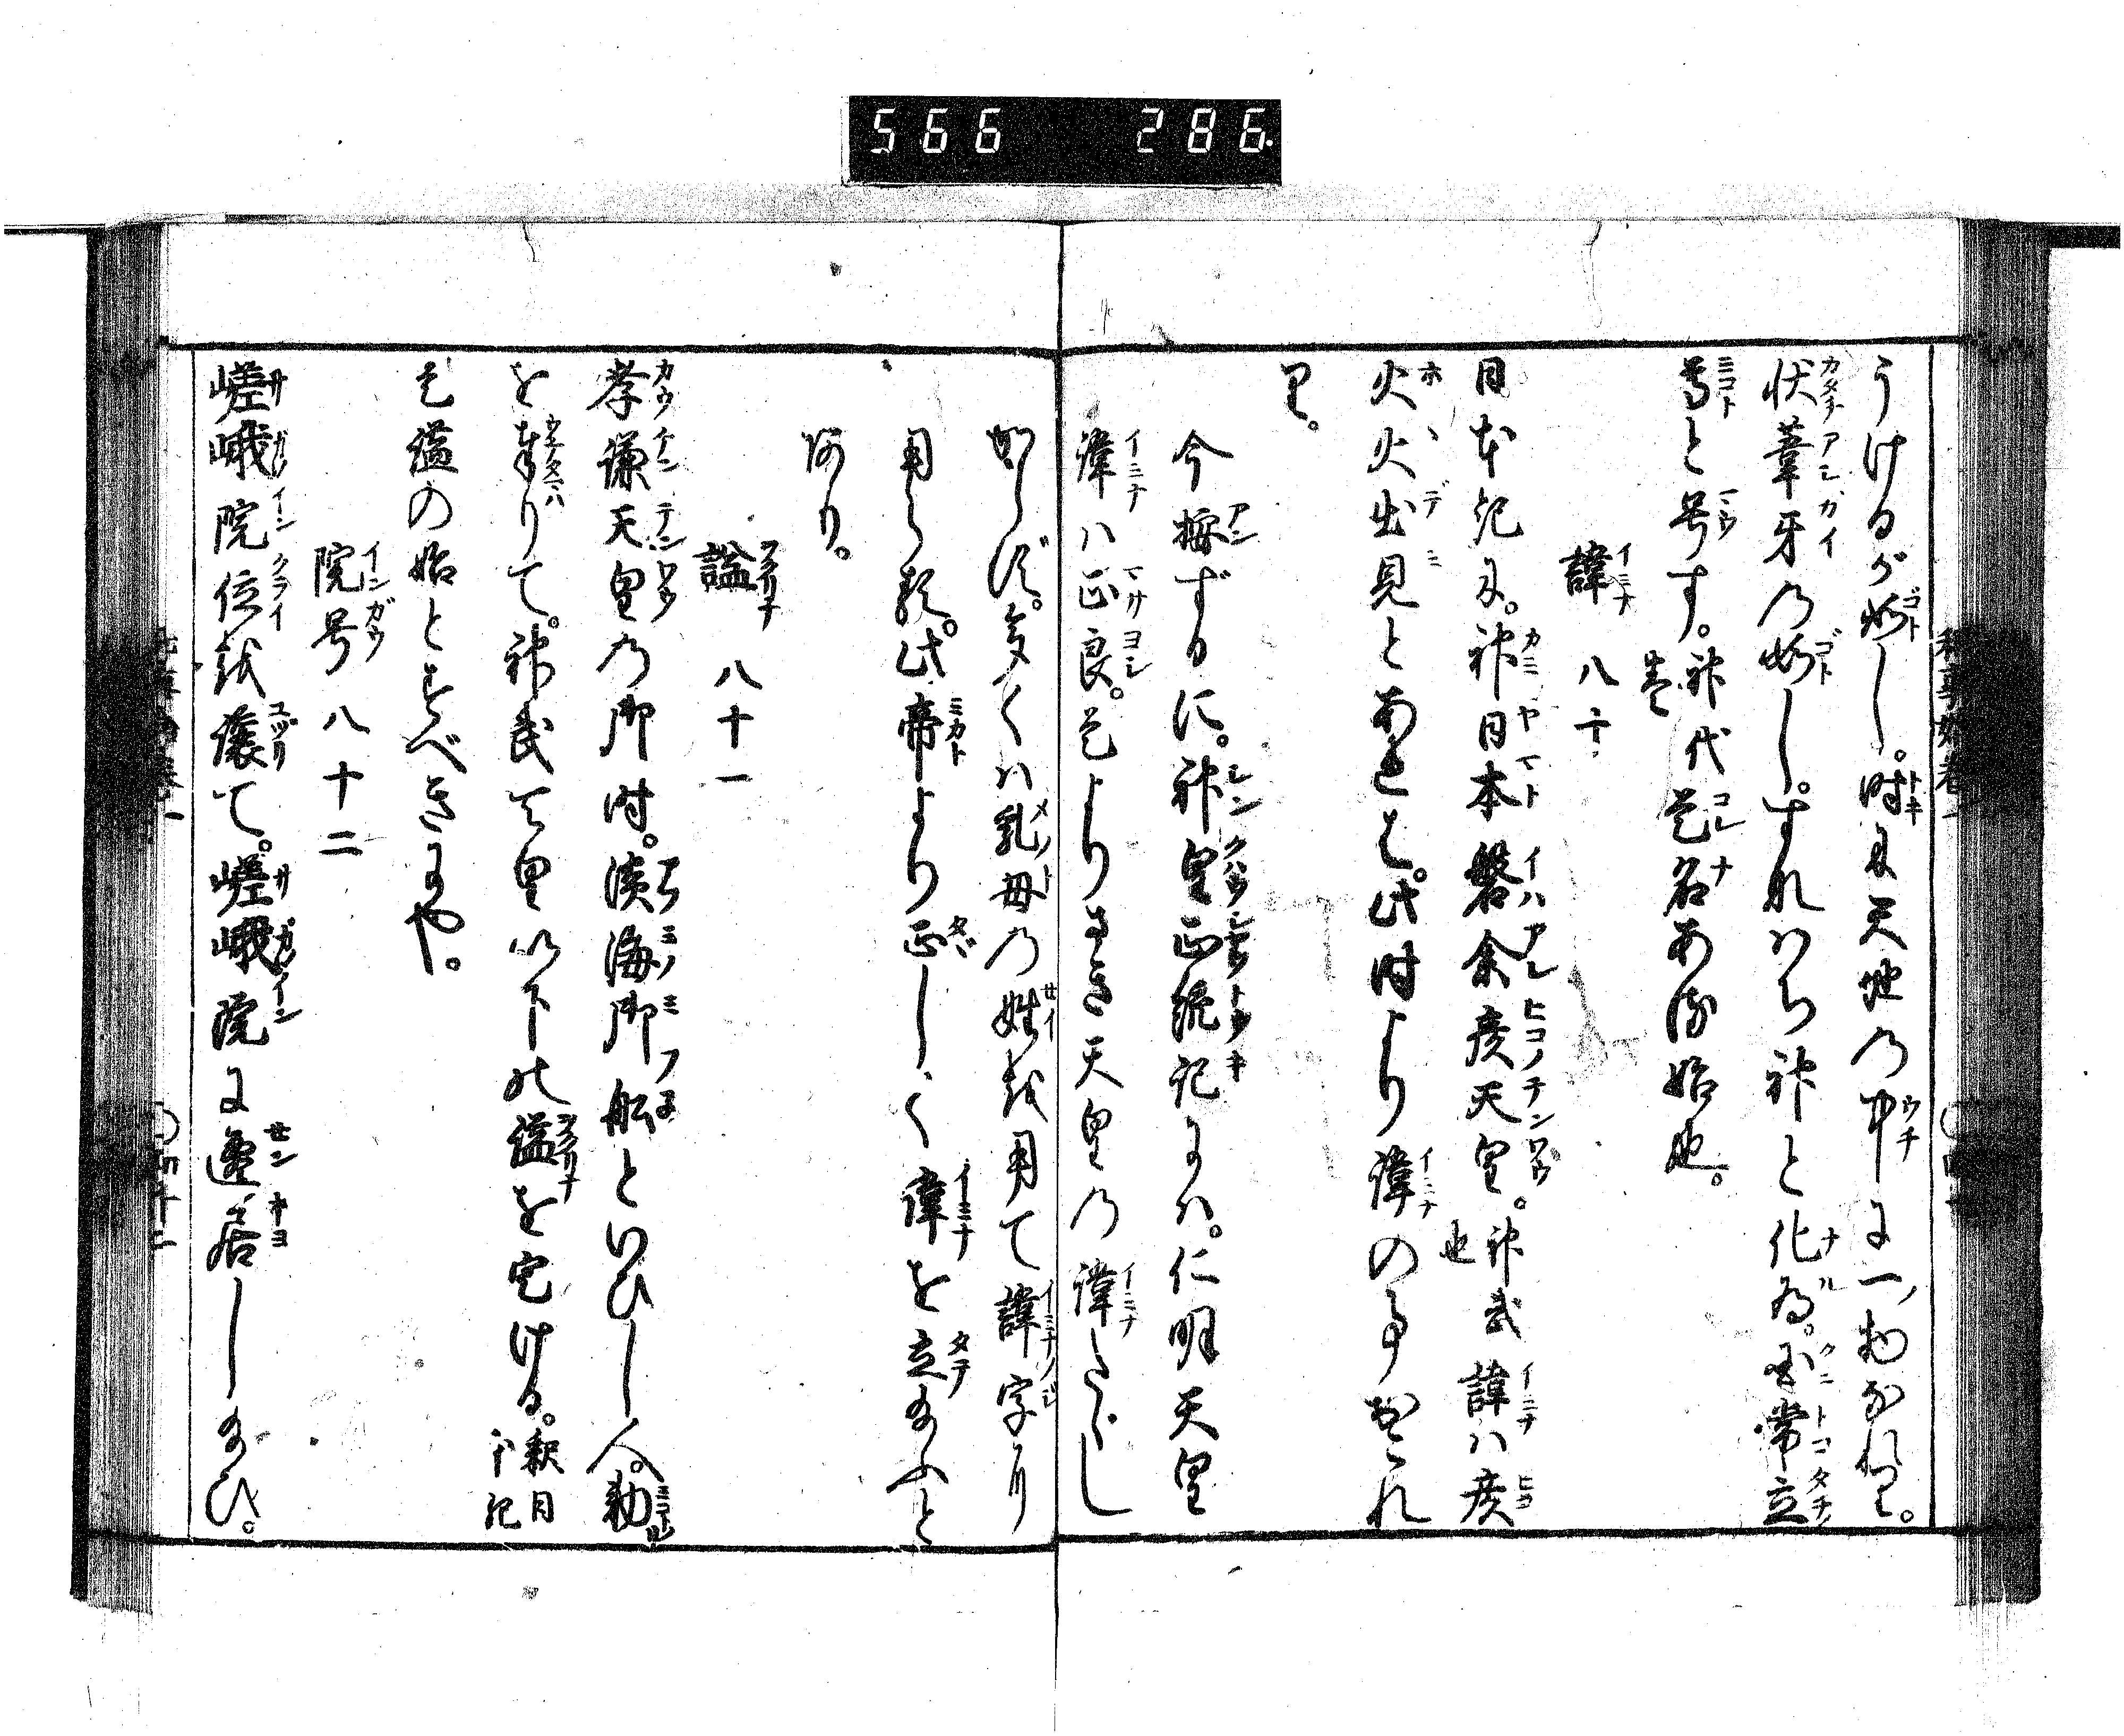 566 286
うけるが如し。時に天地の中に一物なれり。
状葦牙の如し。すなハち神と化為。国常立
尊と号す。神代巻 是名ある始也。
諱 八十
日本紀に。神日本磐余彦天皇。神武也 諱ハ彦
火火出見とあれば。此時より諱の事おこれ
り。
今按ずるに。神皇正統記にハ。仁明天皇
諱ハ正良。是よりさき天皇の諱たしか
ならず。多くハ乳母の姓を用て諱字に
用らる。此帝より正しく諱を立給ふと
あり。
諡 八十一
孝謙天皇の御時。淡海御船といひし人。勅
を奉りて。神武天皇以下の諡を定ける。釈日本紀
是諡の始とすべきにや。
院号 八十二
嵯峨院位を譲て。嵯峨院に遷居し給ひ。